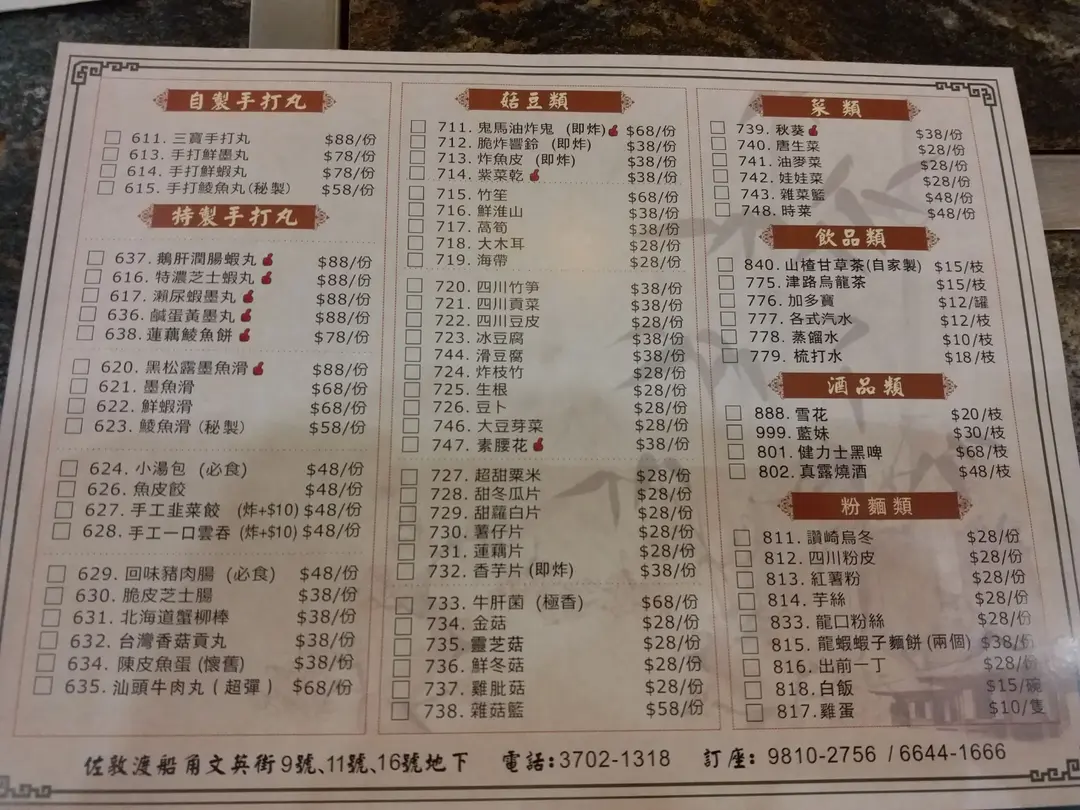 自製手打丸
611. 三寶手打丸 $88/份
613. 手打鮮墨丸 $78/份
614. 手打鮮蝦丸 $78/份
615. 手打鯪魚丸(秘製) $58/份
特製手打丸
637. 鵝肝潤腸蝦丸 $88/份
616. 特濃芝士蝦丸 $88/份
617. 瀨尿蝦墨丸 $88/份
636. 鹹蛋黃墨丸 $88/份
638. 蓮藕鯪魚餅 $78/份
620. 黑松露墨魚滑 $88/份
621. 墨魚滑 $68/份
622. 鮮蝦滑 $68/份
623. 鯪魚滑 (秘製) $58/份
624. 小湯包 (必食) $48/份
626. 魚皮餃 $48/份
627. 手工韭菜餃 (炸+$10) $48/份
628. 手工一口雲吞 (炸+$10) $48/份
629. 回味豬肉腸 (必食) $48/份
630. 脆皮芝士腸 $38/份
631. 北海道蟹柳棒 $38/份
632. 台灣香菇貢丸 $38/份
634. 陳皮魚蛋 (懷舊) $38/份
635. 汕頭牛肉丸 ( 超彈 ) $68/份
菇豆類
711. 鬼馬油炸鬼 (即炸) $68/份
712. 脆炸響鈴 (即炸) $38/份
713. 炸魚皮 (即炸) $38/份
714. 紫菜乾 $38/份
715. 竹笙 $68/份
716. 鮮淮山 $38/份
717. 萵筍 $38/份
718. 大木耳 $28/份
719. 海帶 $28/份
720. 四川竹笋 $38/份
721. 四川貢菜 $38/份
722. 四川豆皮 $28/份
723. 冰豆腐 $38/份
744. 滑豆腐 $38/份
724. 炸枝竹 $28/份
725. 生根 $28/份
726. 豆卜 $28/份
746. 大豆芽菜 $28/份
747. 素腰花 $38/份
727. 超甜粟米 $28/份
728. 甜冬瓜片 $28/份
729. 甜蘿白片 $28/份
730. 薯仔片 $28/份
731. 蓮藕片 $28/份
732. 香芋片 (即炸) $38/份
733. 牛肝菌 (極香) $68/份
734. 金菇 $28/份
735. 靈芝菇 $28/份
736. 鮮冬菇 $28/份
737. 雞肶菇 $28/份
738. 雜菇籃 $58/份
菜類
739. 秋葵 $38/份
740. 唐生菜 $28/份
741. 油麥菜 $28/份
742. 娃娃菜 $28/份
743. 雜菜籃 $48/份
748. 時菜 $48/份
飲品類
840. 山楂甘草茶(自家製) $15/枝
775. 津路烏龍茶 $15/枝
776. 加多寶 $12/罐
777. 各式汽水 $12/枝
778. 蒸餾水 $10/枝
779. 梳打水 $18/枝
酒品類
888. 雪花 $20/枝
999. 藍妹 $30/枝
801. 健力士黑啤 $68/枝
802. 真露燒酒 $48/枝
粉麵類
811. 讚崎烏冬 $28/份
812. 四川粉皮 $28/份
813. 紅薯粉 $28/份
814. 芋絲 $28/份
833. 龍口粉絲 $28/份
815. 龍蝦蝦子麵餅 (兩個) $38/份
816. 出前一丁 $28/份
818. 白飯 $15/碗
817. 雞蛋 $10/隻
佐敦渡船角文英街9號、11號、16號地下 電話:3702-1318 訂座: 9810-2756 / 6644-1666